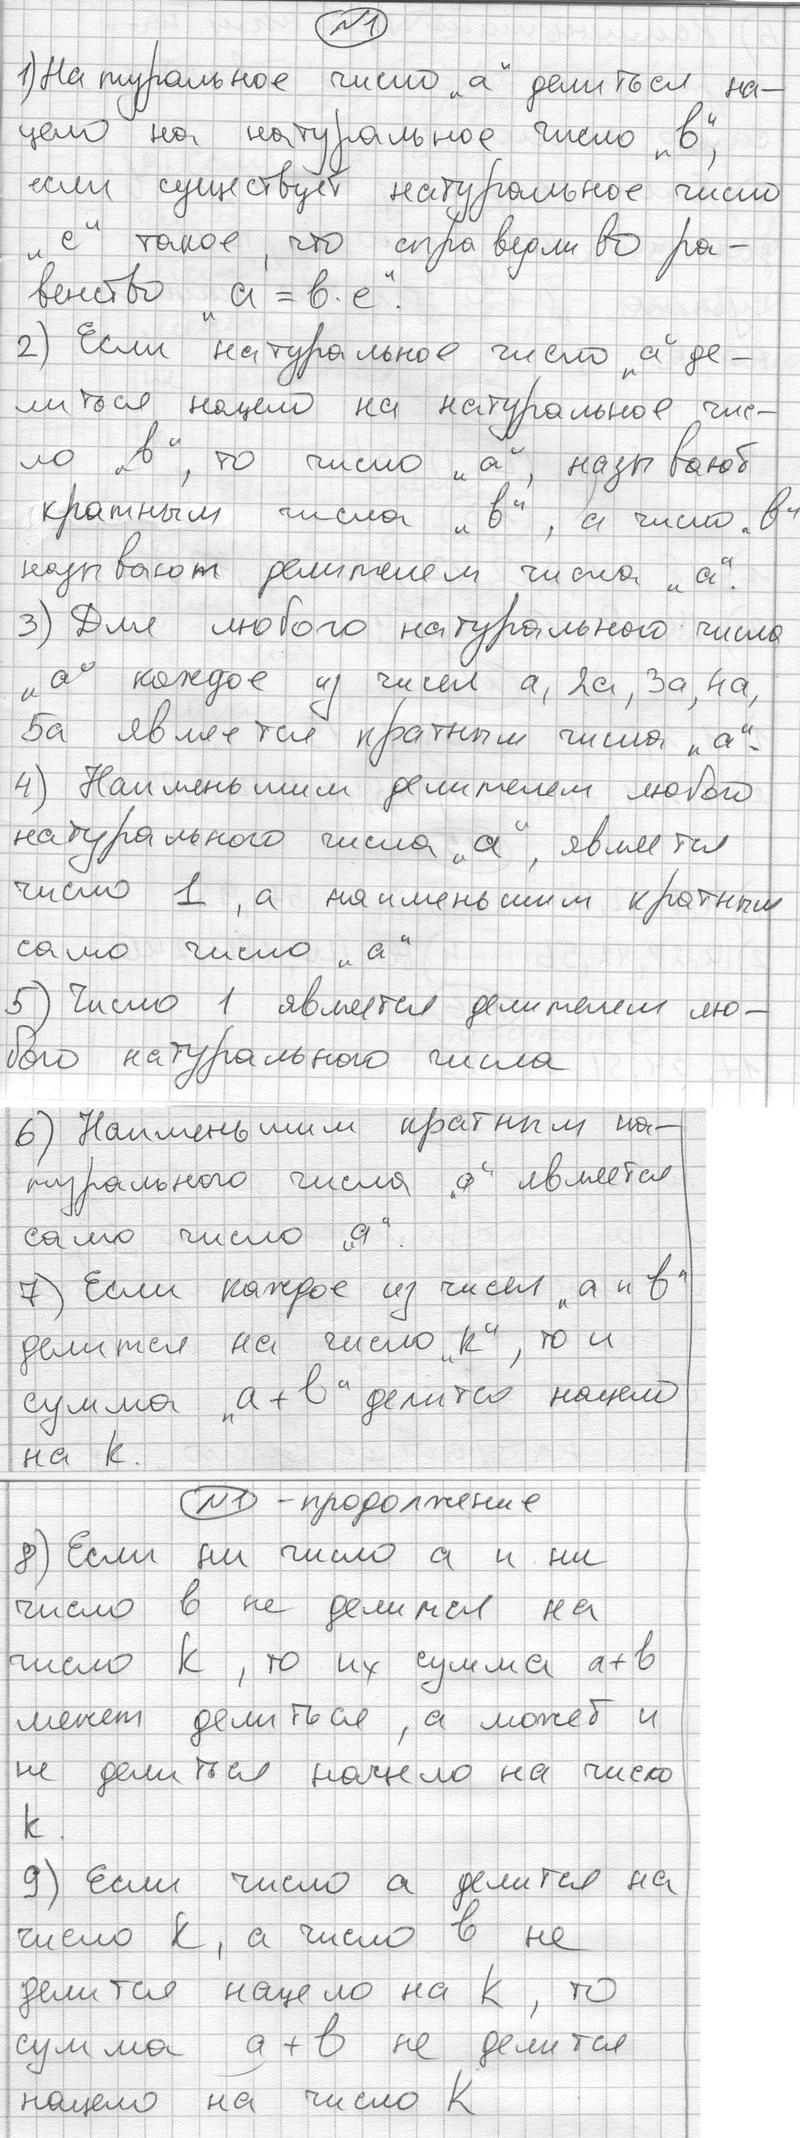 №1
1) Натуральное число „а“ делиться на-
цело на натуральное число „в“,
если существует натуральное число
„с“ такое, что справедливо ра-
венство „а = в · с“.
2) Если натуральное число „а“ де-
литься нацело на натуральное чис-
ло „в“, то число „а“, называют
кратным числа „в“, а число „в“
называют делителем числа „а“.
3) Для любого натурального числа
„а“ каждое из чисел а, 2а, 3а, 4а,
5а является кратным числа „а“.
4) Наименьшим делителем любого
натурального числа „а“, является
число 1, а наименьшим кратным
само число „а“
5) Число 1 является делителем лю-
бого натурального числа
6) Наименьшим кратным на-
турального числа „а“ является
само число „а“.
7) Если каждое из чисел „а и в“
делится на число „k“, то и
сумма „а + в“ делится нацело
на k.
№1 - продолжение
8) Если ни число а и ни
число в не делится на
число k, то их сумма а+в
может делиться, а может и
не делиться нацело на число
k.
9) Если число а делится на
число k, а число в не
делится нацело на k, то
сумма а + в не делится
нацело на число k